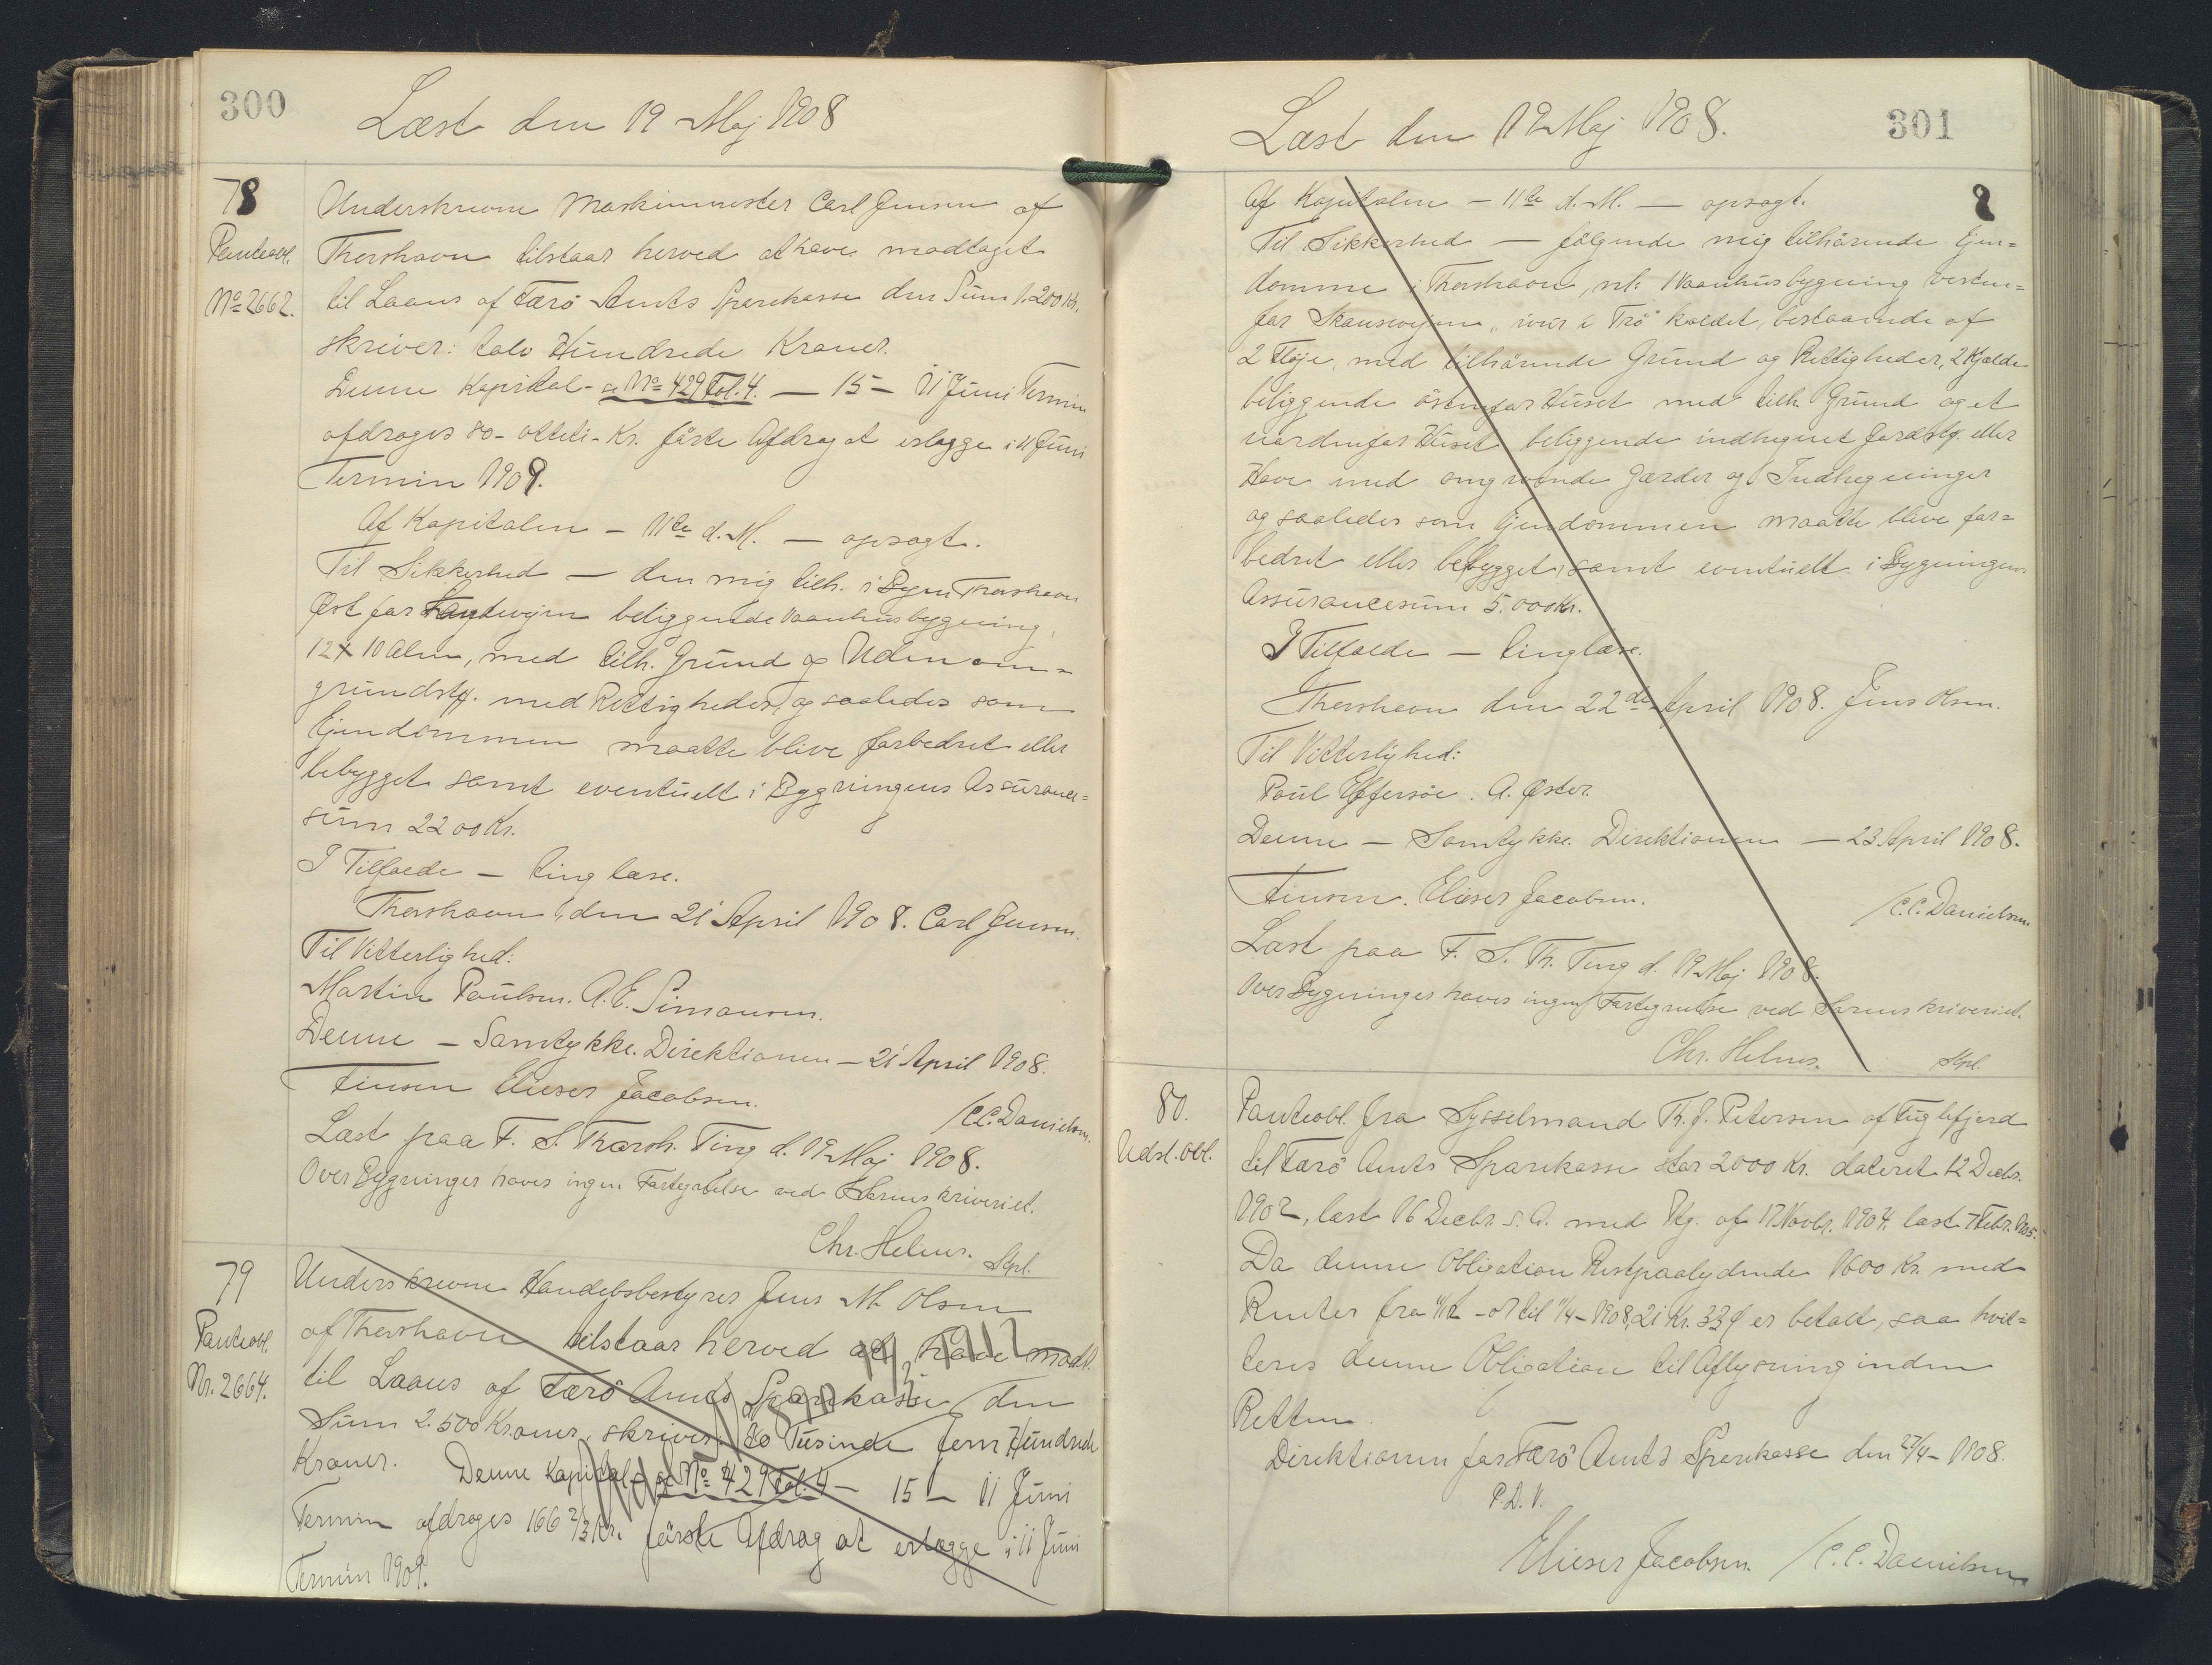 300
Læst den 19 Maj 1908
78
Panteobl.
No 2662.
Underskrevne Maskinmester Carl Jensen af
Thorshavn tilstaar herved at have modtaget
til Laans af Færö Amts Sparekasse den Sum 1.200 Kr.
skriver: tolv Hundrede Kroner.
Denne Kapital - se No 429 Fol. 4. — 15 — 11 Juni Termin
afdrages 80 - otteti - Kr. förste Afdrag at erlægge i 11 Juni
Termin 1909.
Af Kapitalen — 11te d. M. — opsagt.
Til Sikkerhed — den mig tilh. i Byen Thorshavn
Øst for beliggende Vaanhusbygning,
12 x 10 Alen, med tilh. Grund og Udenom=
grundstk. med Rettigheder, og saaledes som
Ejendommen maatte blive forbedret eller
bebygget samt eventuelt i Bygningens Assurance=
sum 2200 Kr.
I Tilfælde — tinglæse.
Thorshavn, den 21 April 1908. Carl Jensen.
Til Vitterlighed:
Martin Poulsen. A. E. Simonsen.
Denne — Samtykke. Direktionen — 21 April 1908.
Finsen Elieser Jacobsen.
/C.C. Danielsen.
Læst paa F. S. Thorsh. Ting d. 19 Maj 1908.
Over Bygninger haves ingen Fortegnelse ved Sorenskriveriet.
Chr. Helms. Kpl.
79
Panteobl.
Nr. 2664.
Underskrevne Handelsbestyrer Jens M. Olsen
af Thorshavn tilstaar herved at have modt.
til Laans af Færö Amts Sparekasse den
Sum 2.500 Kroner, skriver: to Tusinde fem Hundrede
Kroner. Denne Kapital - se No 429 Fol. 4 — 15 — 11 Juni
Termin afdrages 166 2/3 Kr. förste Afdrag at erlægge i 11 Juni
Termin 1909.
301
Læst den 19 Maj 1908.
Af Kapitalen — 11te d. M. — opsagt.
Til Sikkerhed — fölgende mig tilhörende Ejen=
domme i Thorshavn, nl. 1 Vaanhusbygning vesten=
for Skansevejen, kaldet, bestaaende af
2 Fløje, med tilhörende Grund og Rettigheder, 2 Kjælde
beliggende östenfor Huset med tilh. Grund og et
nordenfor Huset beliggende indhegnet Jordstk. eller
Have med omgivende Gærder og Indhegninger
og saaledes som Ejendommen maatte blive for=
bedret eller bebygget, samt eventuelt i Bygningens
Assurancesum 5.000 Kr.
I Tilfælde — tinglæse.
Thorshavn den 22de April 1908. Jens Olsen.
Til Vitterlighed:
Poul Effersöe. A. Øster.
Denne — Samtykke. Direktionen — 23 April 1908.
Finsen. Elieser Jacobsen.
/C.C. Danielsen.
Læst paa F. S. Th. Ting d. 19 Maj 1908.
Over Bygninger haves ingen Fortegnelse ved Sorenskriveriet.
Chr. Helms. Kpl.
80.
Udsl. Obl.
Panteobl. fra Sysselmand Th. J. Petersen af Fuglefjord
til Færö Amts Sparekasse stor 2000 Kr. dateret 12 Decbr.
1902, læst 16 Decbr. s. A. med Ptg. af 17 Novbr. 1904. læst 7 Febr. 1905.
Da denne Obligation Restpaalydende 1600 Kr. med
Renter fra 11/12 - 07 til 11/4 - 1908, 21 Kr. 33 Ø er betalt, saa kvit=
teres denne Obligation til Aflysning inden
Retten.
Direktionen for Færö Amts Sparekasse den 27/4 - 1908.
P. D. V.
Elieser Jacobsen. /C. C. Danielsen